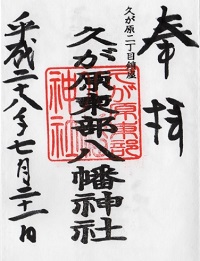 奉拝
久が原二丁目鎮座
久が原東部八幡神社
久が原東部
神社
平成二十八年七月二十一日